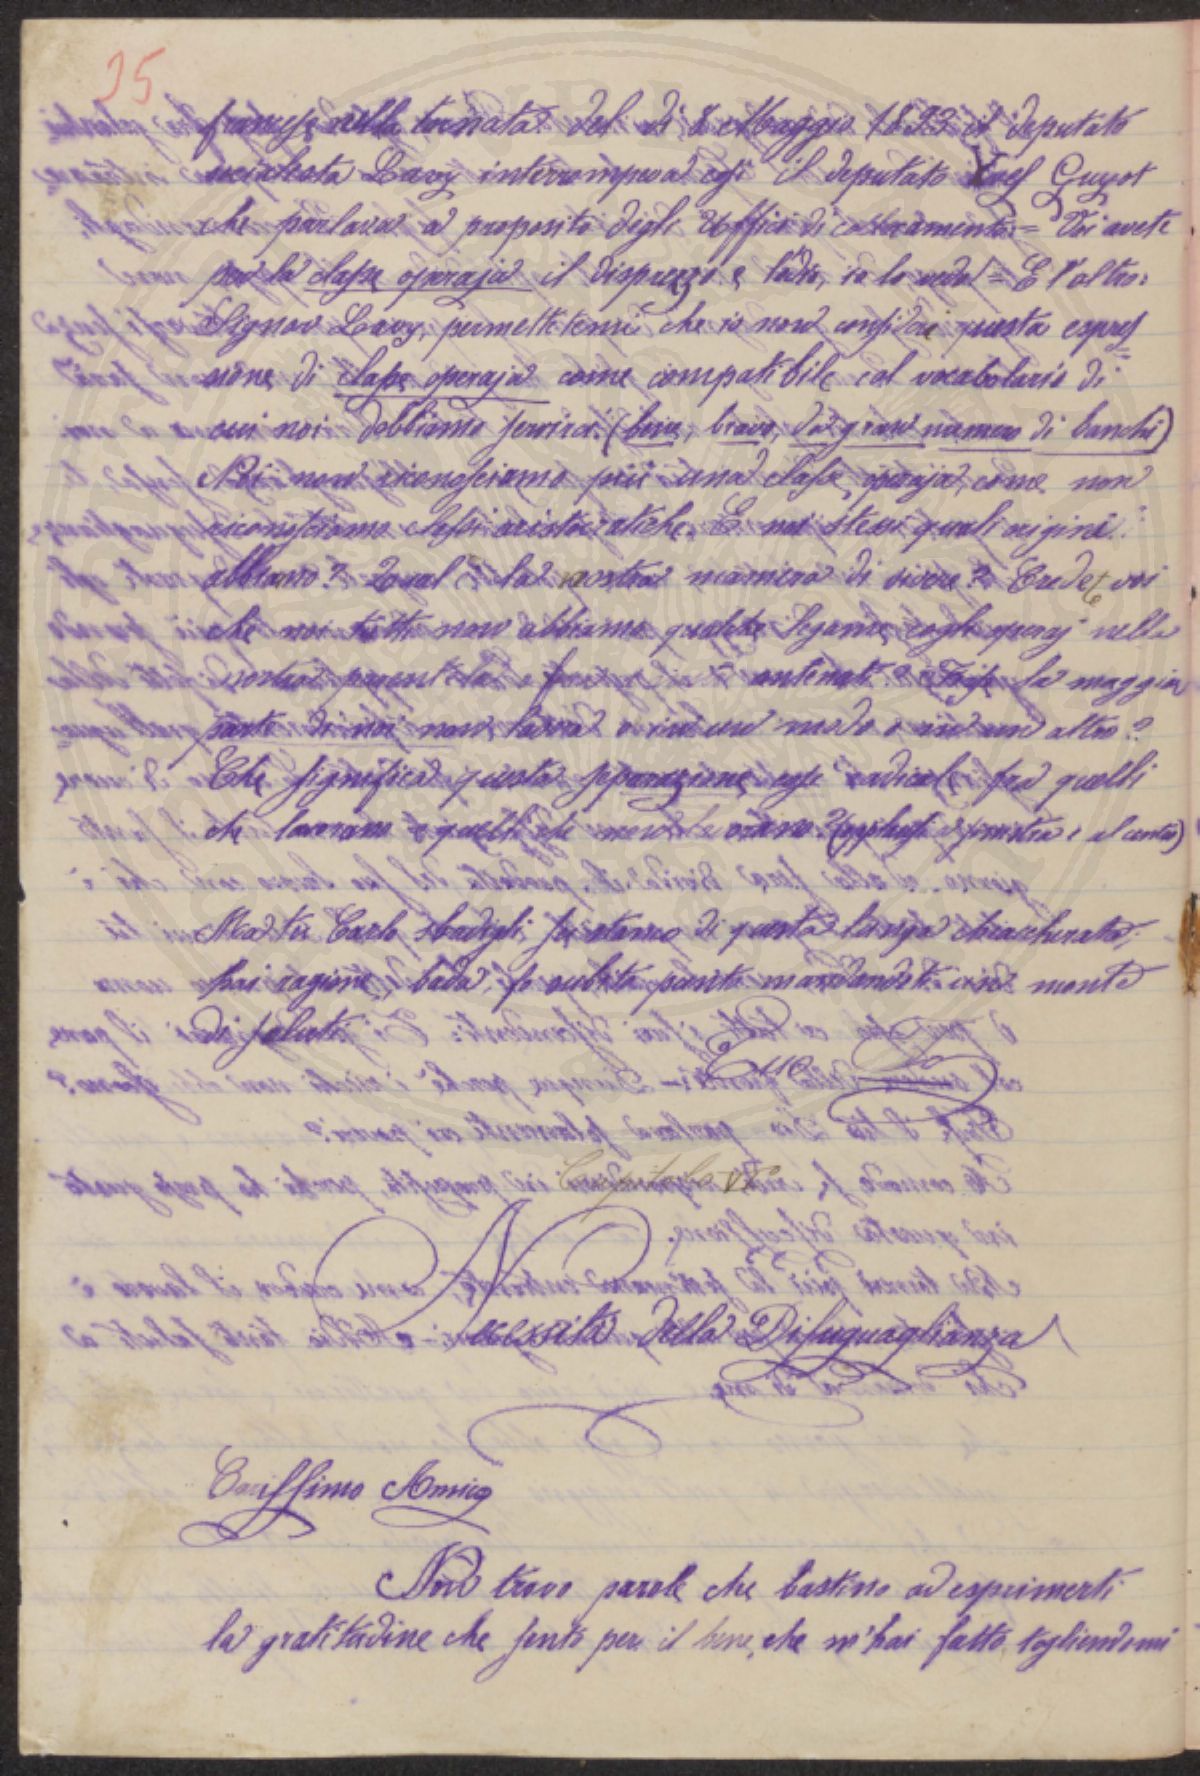 35
francese nella tornata del dì 8 Maggio 1893 il deputato
socialista Lavy interrompeva così il deputato Yves Guyot
che parlava a proposito degli Uffici di collocamento = Voi avete
per la classe operaja il disprezzo e l'odio, io lo vedo! = E l'altro:
Signor Lavy, permettetemi che io non consideri questa espres=
sione di classe operaja come compatibile col vocabolario di
cui noi dobbiamo servirci. (bene, bravo, da gran numero di banchi)
Noi non riconosciamo più una classe operaja, come non
riconosciamo classi aristocratiche. E noi stessi quali origini
abbiamo? Qual è la nostra maniera di vivere? Credete voi
che noi tutti non abbiamo qualche legame cogli operaj nella
nostra parentela e fra i nostri antenati? Forse la maggior
parte di noi non lavora o in un modo o in un altro?
Che significa questa separazione così radicale fra quelli
che lavorano e quelli che non lavorano? (applausi a sinistra e al centro)
Ma tu Carlo sbadigli, sei stanco di questa lunga chiacchierata;
hai ragione, bada, fo subito punto mandandoti
di saluti.
Tuo
Capitolo VI
Necessità della Disuguaglianza
Carissimo Amico
Non trovo parole che bastino ad esprimerti
la gratitudine che sento per il bene che m'hai fatto togliendomi